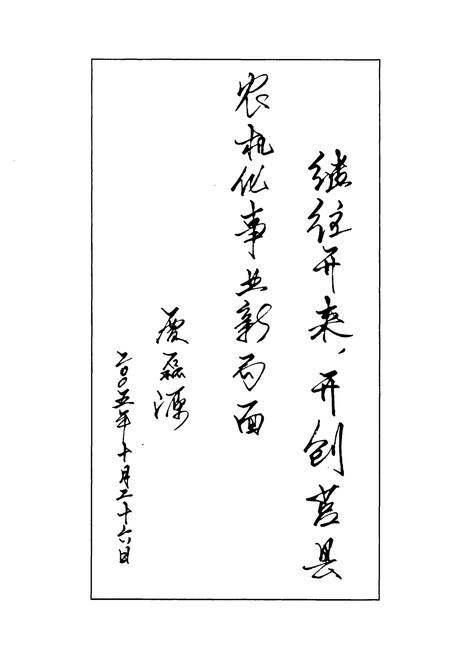 继往开来，开创莒县
农机化事业新局面
贾磊源
二〇〇五年十月二十六日